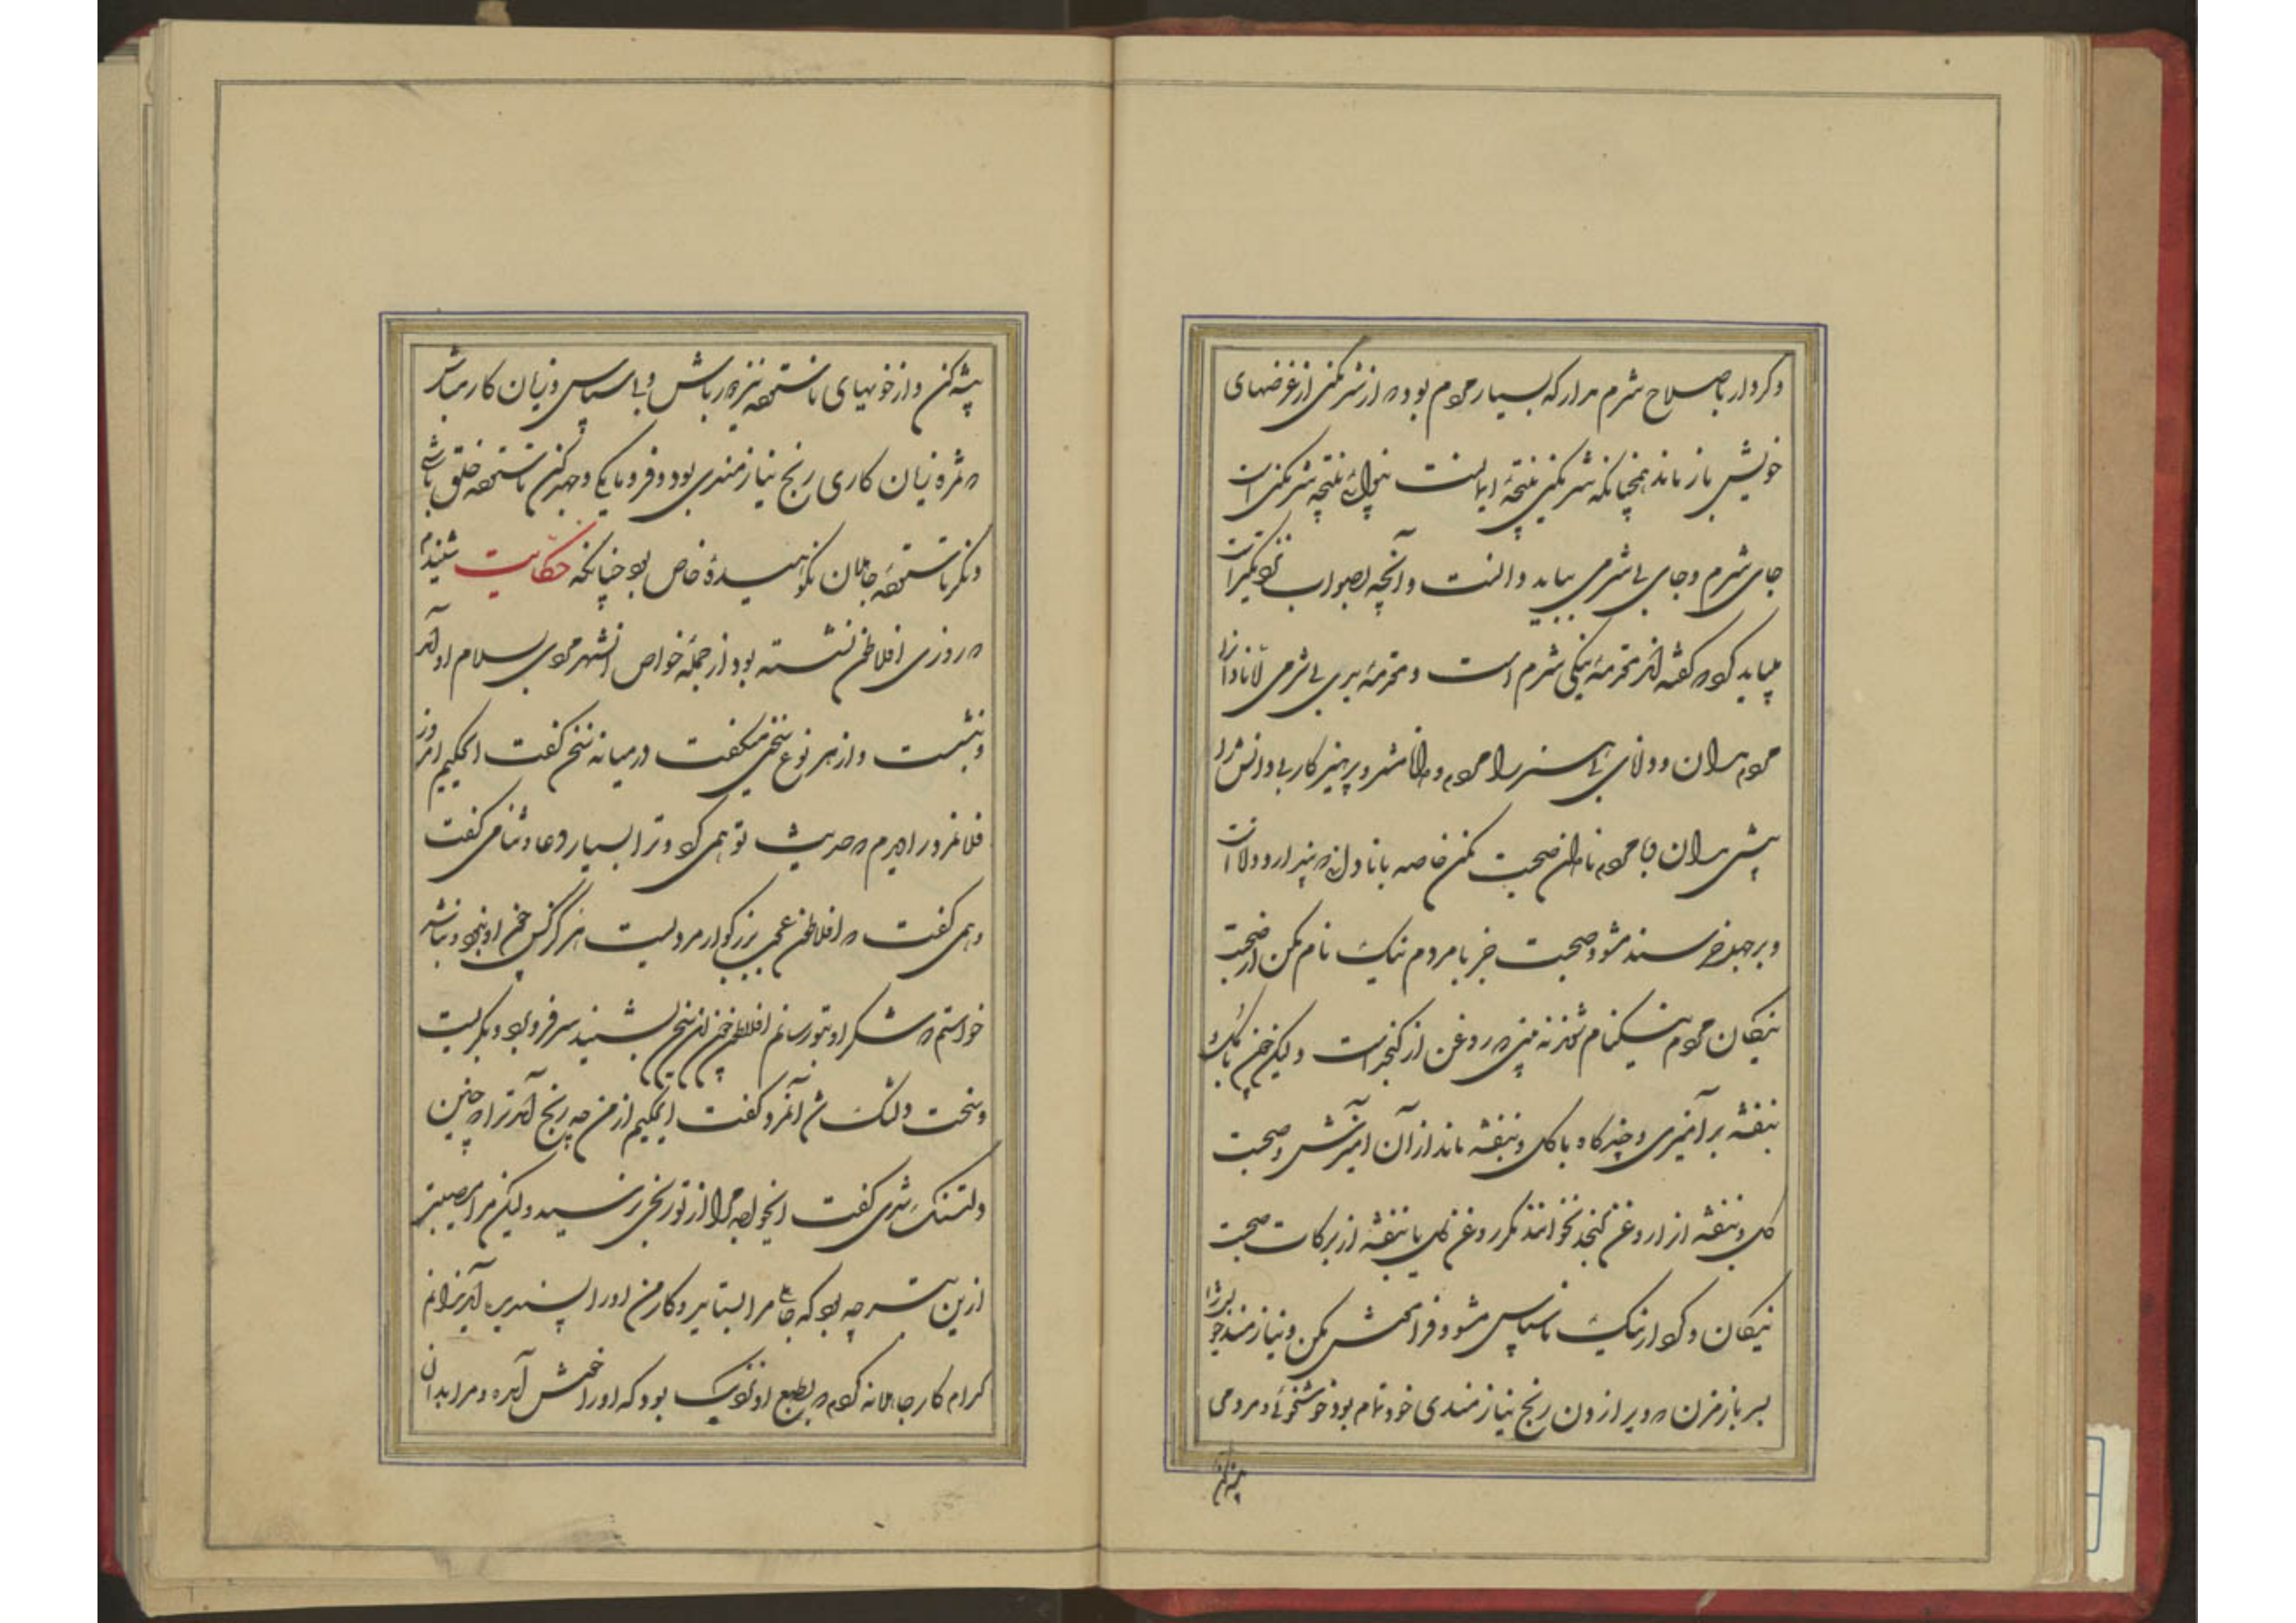 و کردار با صلاح شرم مدار که بسیار مردم بود که از شرمگنی از غرضهای
خویش باز ماند همچنانکه شرمگنی نتیجه ایمانست بینوائی نتیجه شرمگنی است
جای شرم و جای بی شرمی بباید دانست و آنچه بصواب نزدیکتر است
میباید کرد که گفته اند مقدمه نیکی شرم است و مقدمه بدی بی شرمی اما نادانرا
مردم مدان و دانای بی هنر را مردم دانا مشمر و پرهیزکار بی دانش را زاهد
بیش مدان و با مردم نادان صحبت مکن خاصه با نادانی که پندارد داناست
و بر جهل خرسند مشو و صحبت جز با مردم نیک نام مکن که از صحبت
نیکان مردم نیکنام شوند نه بینی که روغن از کنجد است و لیکن چون با گل و
بنفشه بر آمیزی و چند گاه با گل و بنفشه ماند از آن آمیزش و صحبت
گل و بنفشه او را روغن کنجد نخوانند مگر روغن گل یا بنفشه از برکات صحبت
نیکان و کردار نیک ناسپاس مشو و فرامش مکن و نیازمند خود را
بسر باز مزن که ویرا زدن رنج نیازمندی خود تمام بود خوشخوئی و مردمی
پیشه کن
پیشه کن و از خویهای ناستوده نیز دور باش و بی سپاس و زیان کار مباش
که ثمره زیان کاری رنج نیازمندی بود و فرومایگی و جهد کن تا ستوده خلق باشی
و نگر تا ستوده جاهلان نکوهیده خاص بود چنانکه حکایت شنیدم
که روزی افلاطن نشسته بود از جمله خواص آنشهر مردی بسلام او آمد
و بنشست و از هر نوع سخن میگفت در میانه سخن گفت ای حکیم امروز
فلانمرد را دیدم که حدیث تو همی کرد و ترا بسیار دعا و ثنا می گفت
و همی گفت که افلاطن عجب بزرگوار مردیست هرگز کس چون او نبود و نباشد
خواستم که شکر او بتو رسانم افلاطن چون این سخن بشنید سر فرو برد و بگریست
و سخت دلتنگ شد آنمرد گفت ای حکیم از من چه رنج آمد ترا که چنین
دلتنگ شدی گفت ای خواجه مرا از تو رنجی نرسید و لیکن مرا مصیبت
ازین بتر چه بود که جاهلی مرا بستاید و کار من او را پسندیده آید ندانم
کدام کار جاهلانه کردم که بطبع او نزدیک بود که او را خوش آمده و مرا بدان